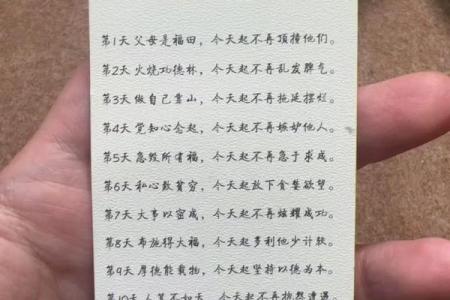 第1天 父母是福田，今天起不再顶撞他们。
第2天 火烧功德林，今天起不再乱发脾气。
第3天 做自己靠山，今天起不再拖延摆烂。
第4天 觉知心念起，今天起不再嫉妒他人。
第5天 急毁所有福，今天起不再急于求成。
第6天 私心致贫穷，今天起放下贪婪欲望。
第7天 大事以密成，今天起不再炫耀成功。
第8天 布施得大福，今天起多利他少计较。
第9天 厚德能载物，今天起坚持以德为本。
第10天 人算不如天，今天起不再抱怨遭遇。